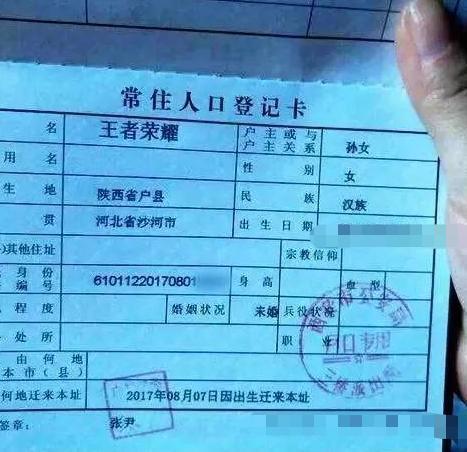 常住人口登记卡
名 王者荣耀 户主或与户主关系 孙女
用名 性别 女
生地 陕西省户县 民族 汉族
贯 河北省沙河市 出生日期
其他住址 宗教信仰
身份编号 61011220170801 身高 血型
程度 婚姻状况 未婚 兵役状况
处所 职业
由何地
本市（县）
何地迁来本址 2017年08月07日因出生迁来本址
签章： 张尹